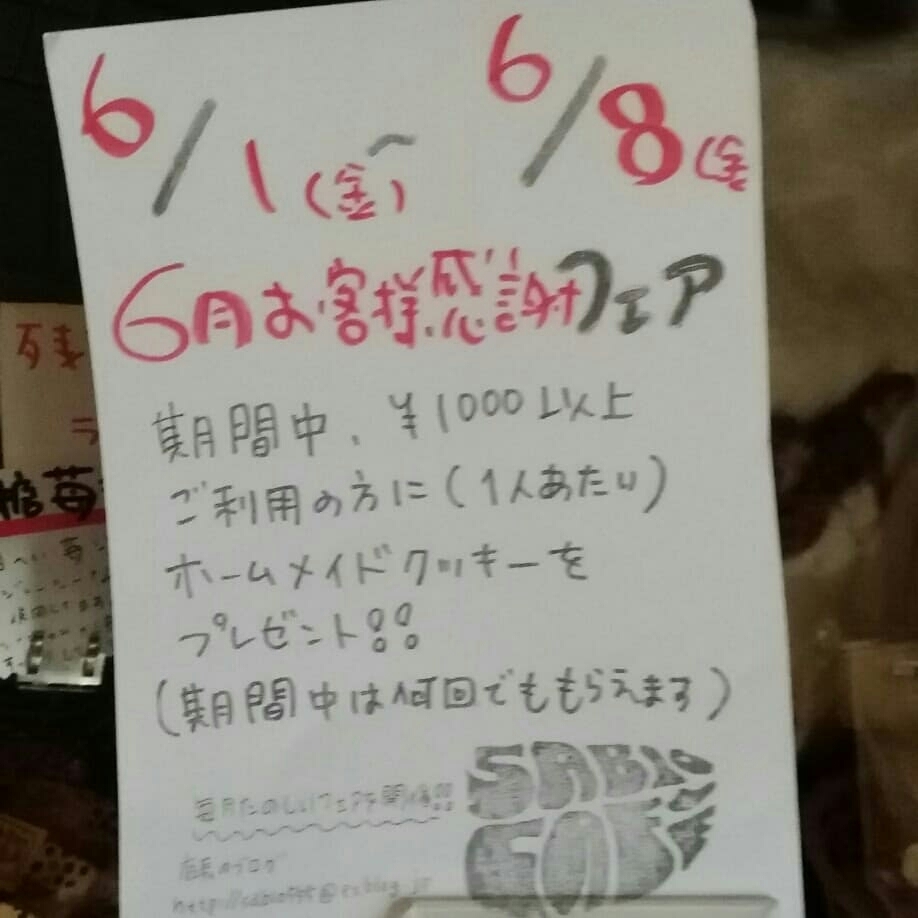 6/1(金)〜6/8(金
6月お客様感謝フェア
期間中、¥1000以上
ご利用の方に(1人あたり)
ホームメイドクッキーを
プレゼント!!
(期間中は何回でももらえます)
毎月たのしいフェアを開催!!
店長のブログ
SABIO
苺